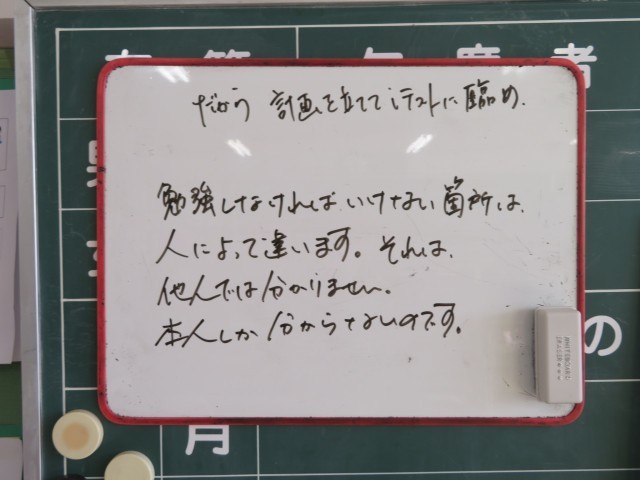 計画を立ててテストに臨め。
勉強しなければいけない箇所は、
人によって違います。それは、
他人では分かりません。
本人しか分からないのです。
の
月